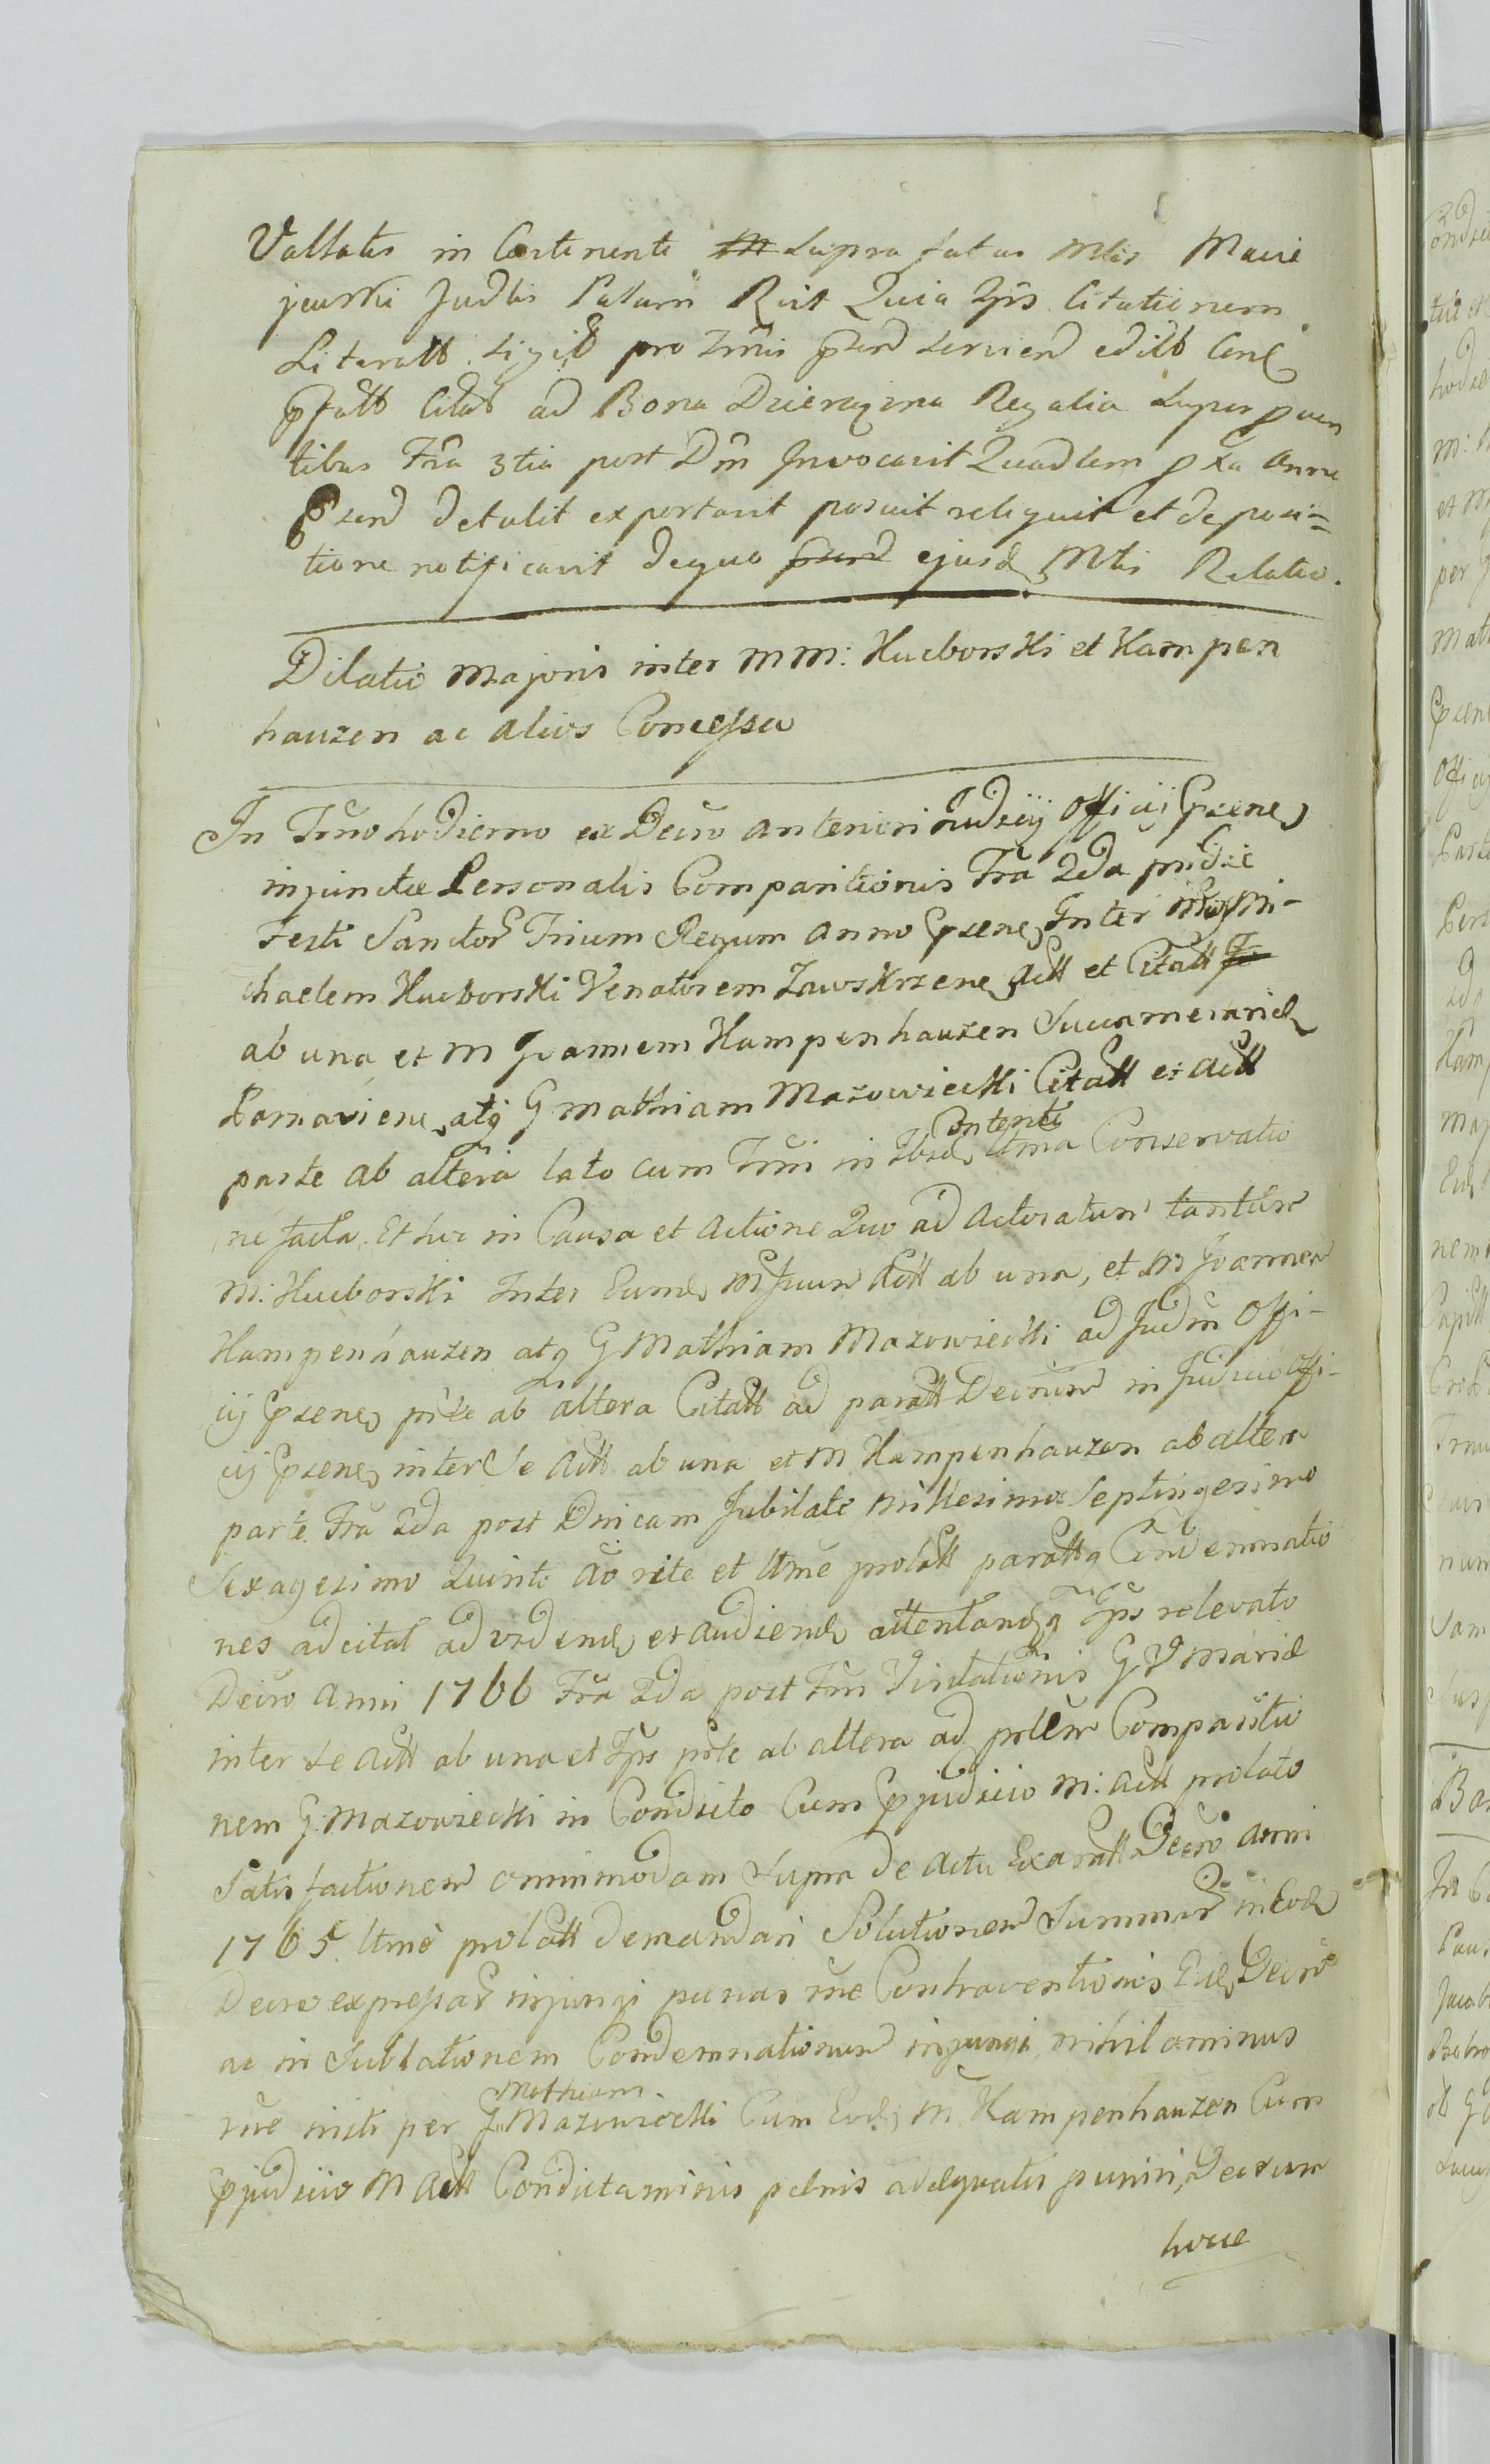 Vallatis in Continenti supra fatus Mtis Macie
jewski Judlis Palam Rcit Quia Iprs Citationem
Literatt sigill pro Trnis prsend serviend edill Canc
prfatt Citat ad Bona Dzierazna Regalia super quen
tibus Fra 3tia post Dm Invocavit Quadlem pxa Anno
Prsend detulit exportavit posuit reliquit et de posi=
tione notificavit dequo ejusd Mtis Relatio.
Dilatio Majoris inter MM: Kucborski et Kampen
hauzen ac Alios Concessa
In Trno hodierno ex Decro anteriori Judicij Officij Prsenc
injunctæ Personalis Comparitionis Fra 2da pridie
Festi Sanctor Trium Regum Anno Prsenc Inter Mi-
chaelem Kucborski Venatorem Zawskrzenc Actt et Citatt
ab una et M Joannem Kampenhauzen Succamerarid
Parnavienc atq G Mathiam Mazowiecki Citatt et Actt
parte ab altera lato cum Trni in Ibid Contenti ltma Conservatio
ne facta. Et hoc in Causa et Actione Quo ad Actoratum tantum
M: Kucborski Inter Eund Mfcum Actt ab una, et M Joannem
Kampenhauzen atq G Mathiam Mazowiecki ad Judm Offi-
cij Prsenc prte ab altera Citatt ad paratt Decrum in Judicio Offi-
cij Prsenc inter Se Actt ab una et M Kampenhauzen ab altera
parte Fra 2da post Dnicam Jubilate Millesimo Septingesimo
Sexagesimo Quinto Ao rite et ltme prolatt parattq Condemnatio
nes ad citat ad vidend et audiend attentandq Iprs relevato
Decro Anni 1766 Fra 2da post Fm Visitationis G V Mariæ
inter se Actt ab una et Iprs prte ab altera ad prlem Comparitio
nem G: Mazowiecki in Condicto Cum Prjudicio M: Actt prolato
Satisfactionem omnimodam supra de Actu Exaratt Decro Anni
1765 ltme prolatt demandari Solutionem Summar in Eod
Decro expressar injungi pænas rne Contraventionis Eid Decro
ac in Sublationem Condemnationum injungi nihilominus
rne initi per G Mathiam Mazowiecki Cum Eod M Kampenhauzen Cum
Prjudicio M Actt Condictaminis pænis adæquatis puniri, Decrum
hocce